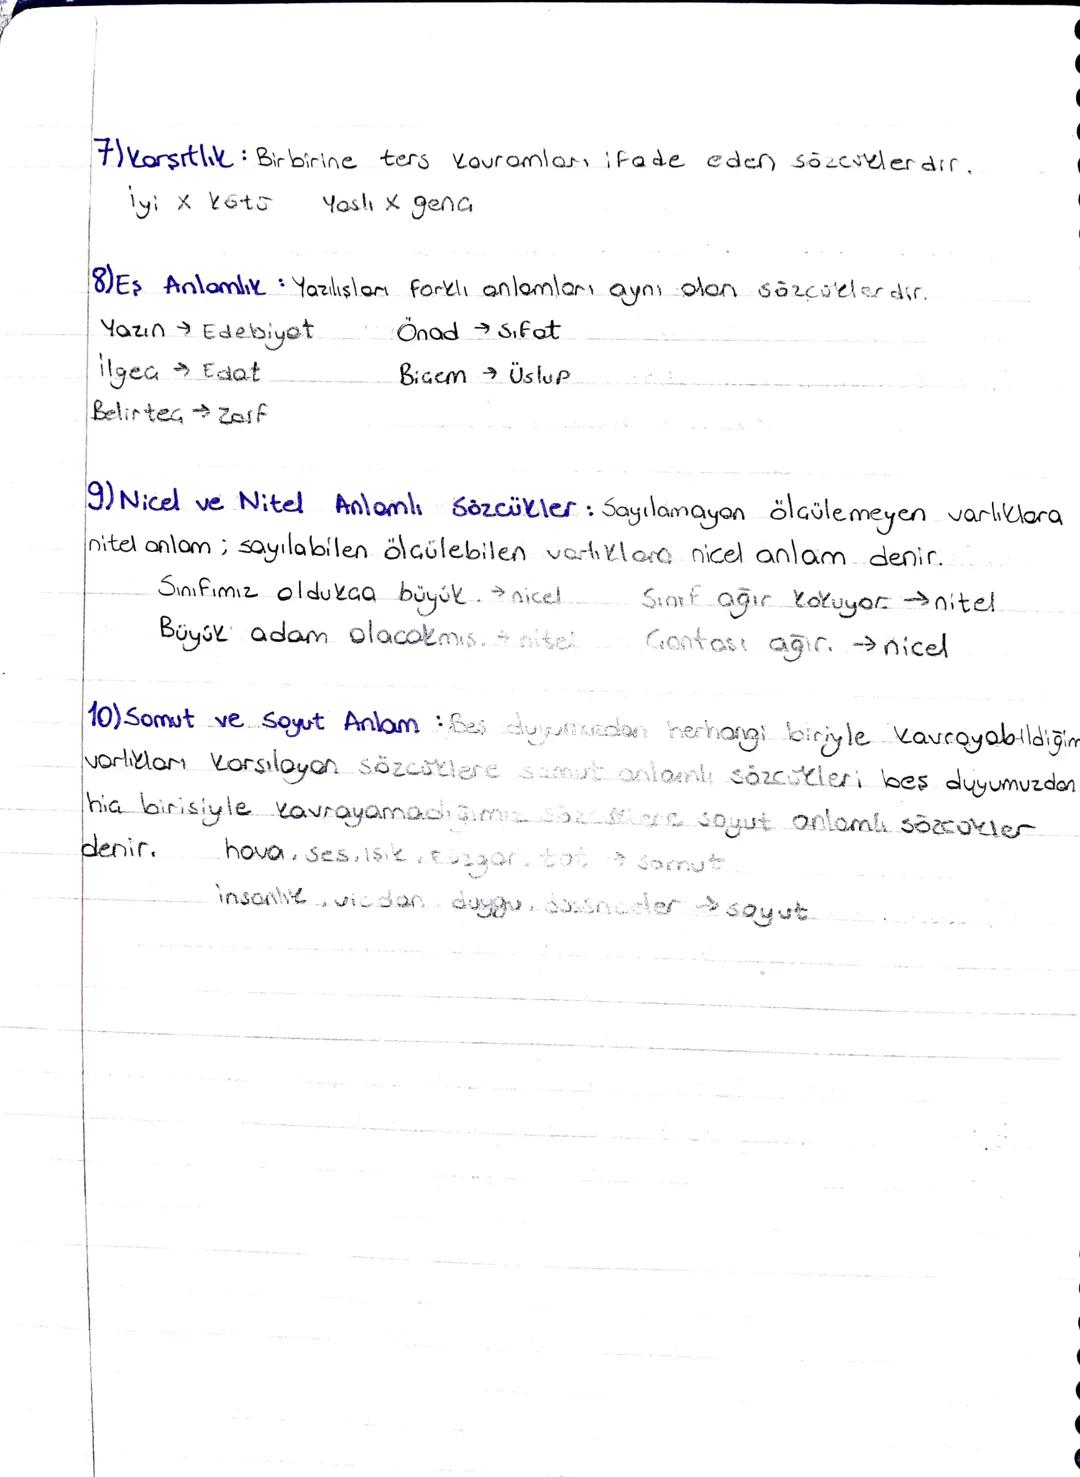 7) Karşıtlık : Birbirine ters kavramları ifade eden sözcüklerdir.
İyi x kötü Yaşlı x genç
8) Eş Anlamlık : Yazılışları farklı anlamları aynı olan sözcüklerdir.
Yazın → Edebiyat Önad → Sıfat
İlgeç → Edat Biçem → Üslup
Belirteç → Zarf
9) Nicel ve Nitel Anlamlı Sözcükler : Sayılamayan ölçülemeyen varlıklara
nitel anlam ; sayılabilen ölçülebilen varlıklara nicel anlam denir.
Sınıfımız oldukça büyük. → nicel Sınıf ağır kokuyor → nitel
Büyük adam olacakmış. → nitel Çantası ağır. → nicel
10) Somut ve Soyut Anlam : Beş duyumuzdan herhangi biriyle kavrayabildiğim
varlıkları karşılayan sözcüklere somut anlamlı sözcükleri beş duyumuzdan
hiç birisiyle kavrayamadığımız sözcüklere soyut anlamlı sözcükler
denir. hava, ses, ışık, rüzgar, tat → somut
insanlık, vicdan, duygu, düşünceler → soyut